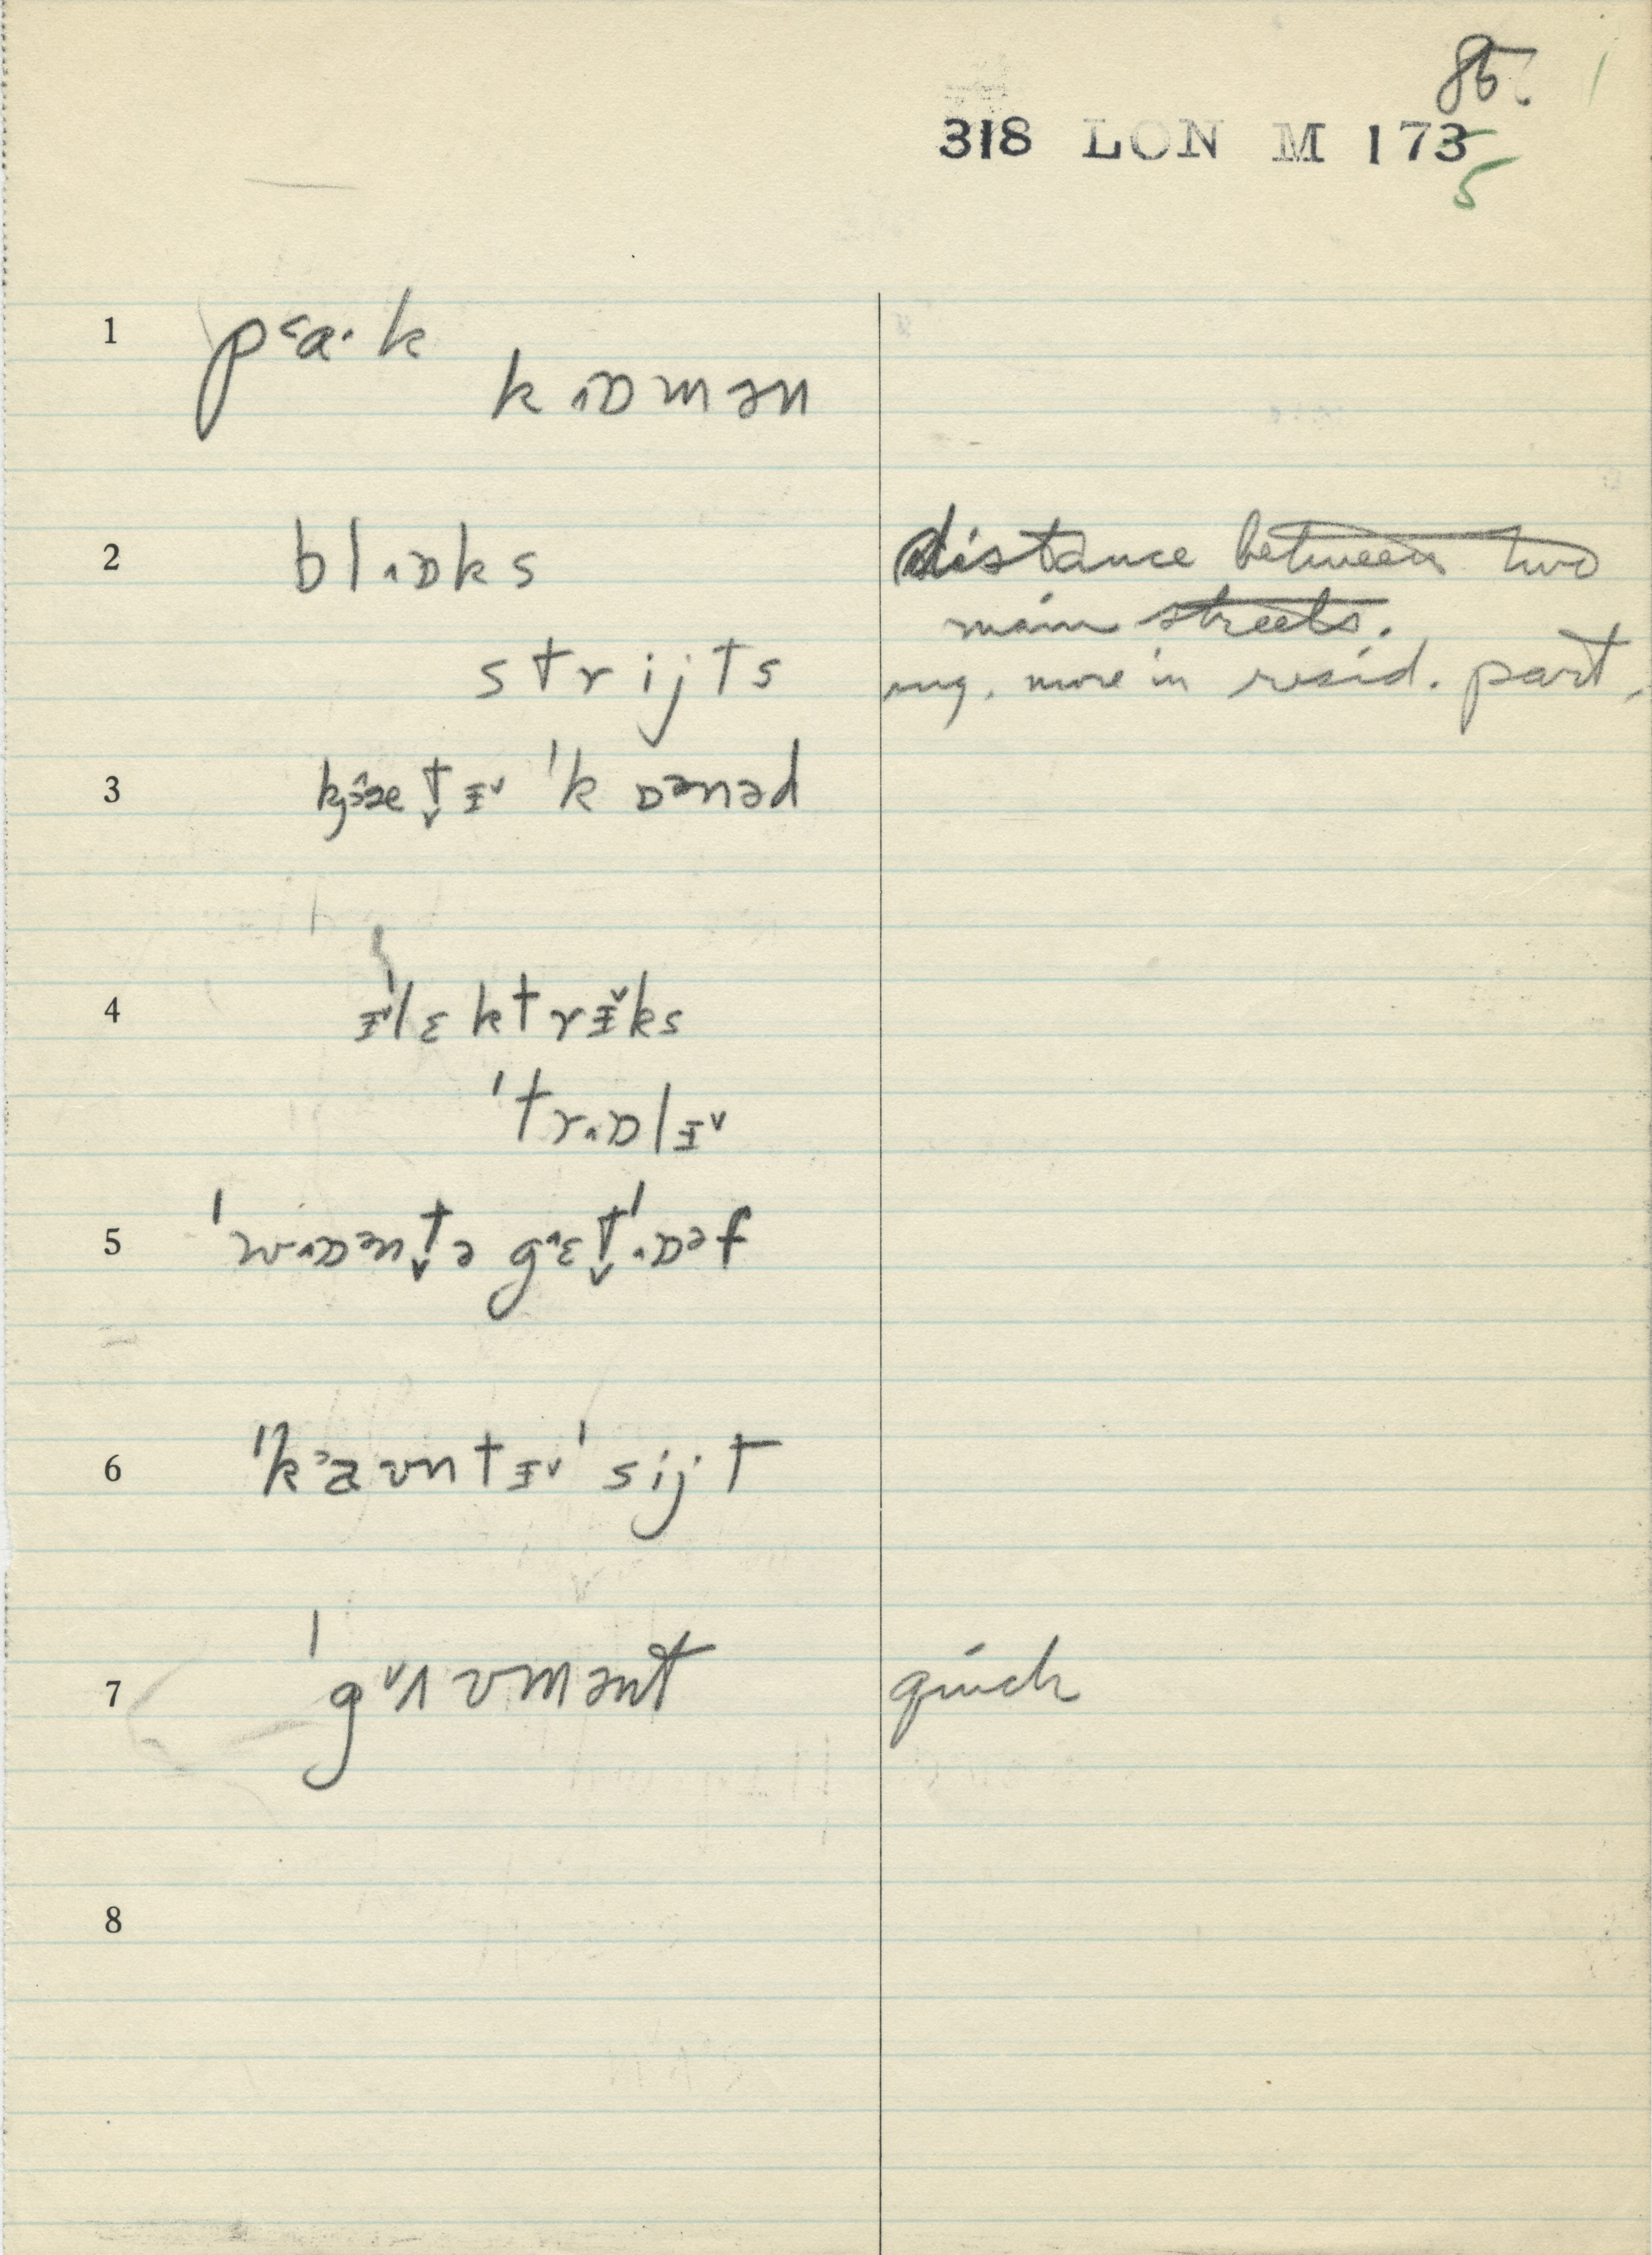 85
318 LON M 173
5
1 pᵋa·k
kɒmən
2 blɒks distance between two
main streets.
strijts neg. more in resid. part.
3 kjæt̬ɨ ˈkɒᵊnəd
4 ɨˈlɛktrɨks
ˈtrɒlɨ
5 ˈwɒᵊnt̬ə gɛt̬ˈɒᵊf
6 ˈkaʊntɨ ˈsijt
7 ˈgʌvmənt quick
8